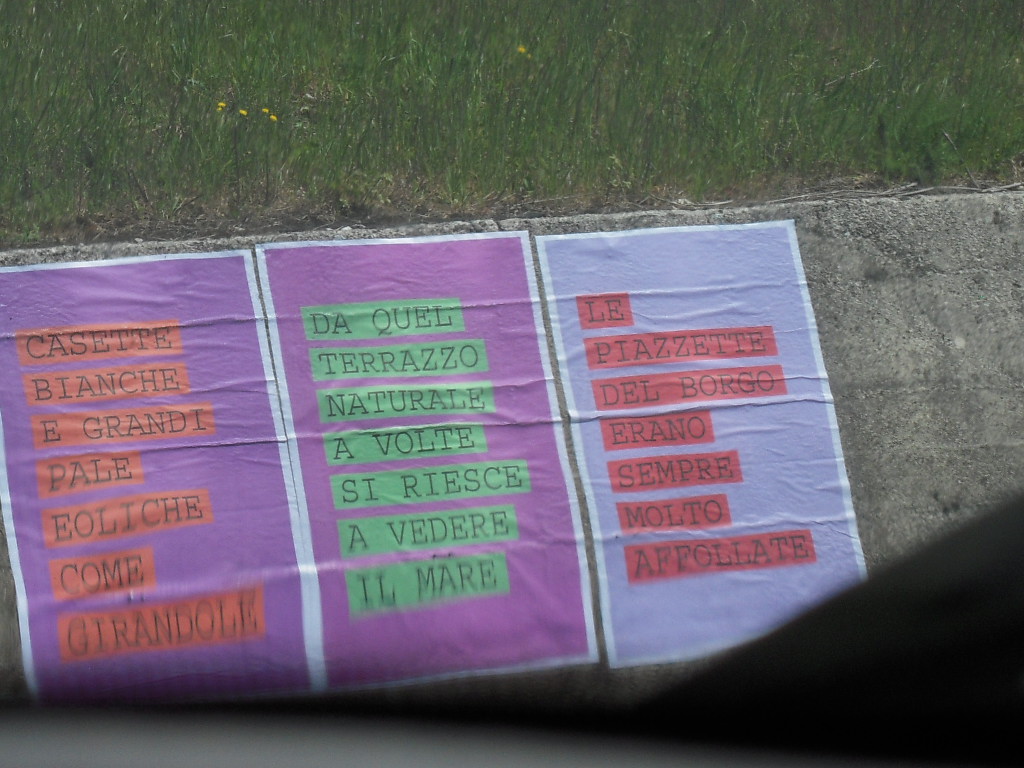 CASETTE
BIANCHE
E GRANDI
PALE
EOLICHE
COME
GIRANDOLE
DA QUEL
TERRAZZO
NATURALE
A VOLTE
SI RIESCE
A VEDERE
IL MARE
LE
PIAZZETTE
DEL BORGO
ERANO
SEMPRE
MOLTO
AFFOLLATE